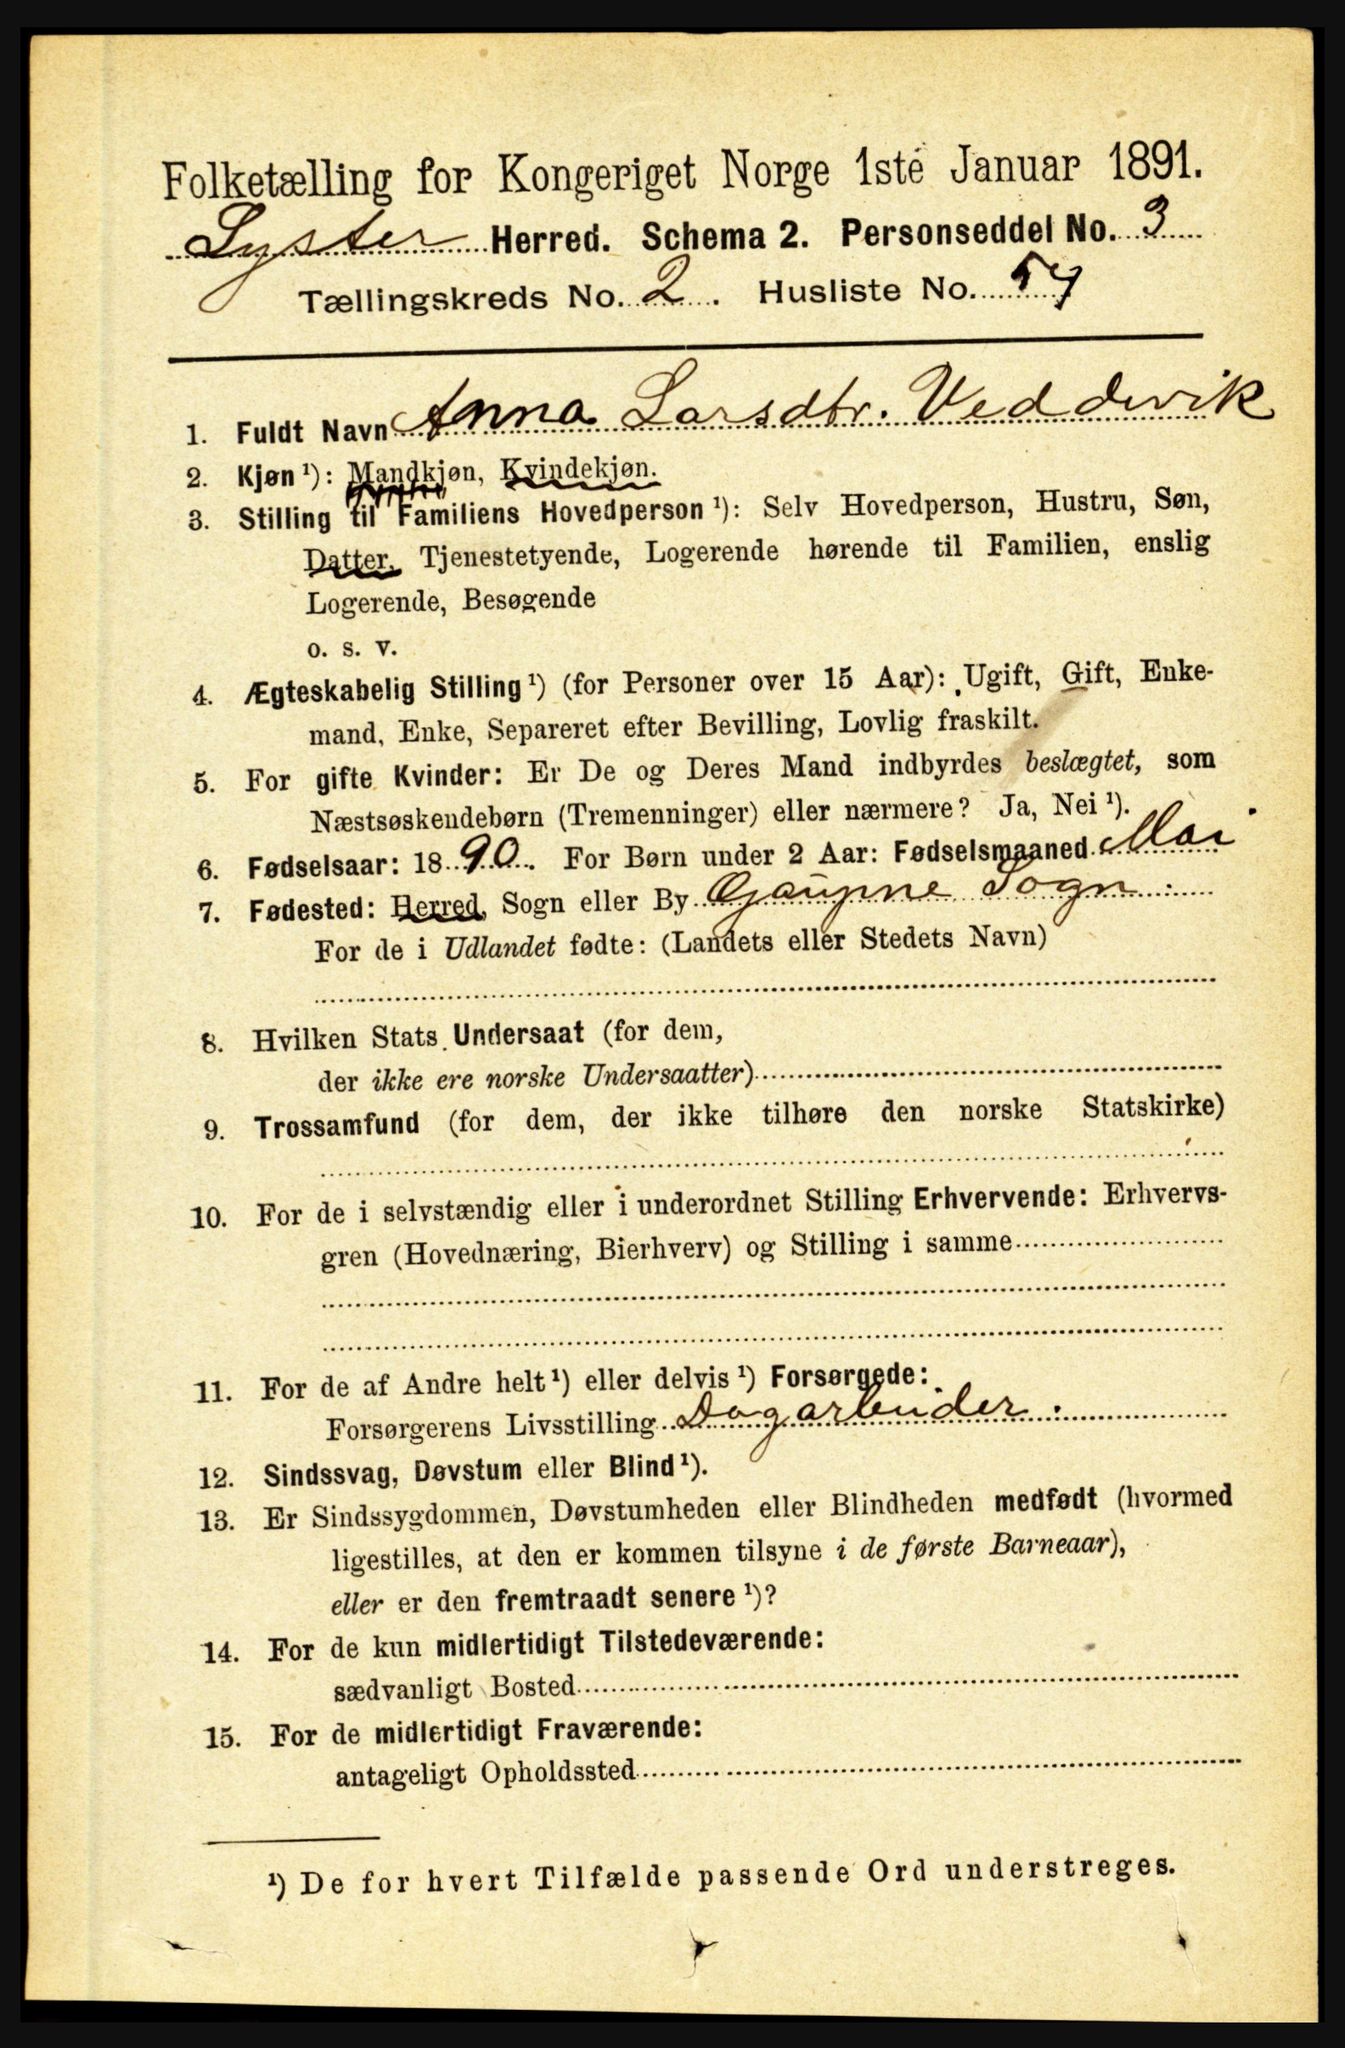 Folketælling for Kongeriget Norge 1ste Januar 1891.
Lyster Herred. Schema 2. Personseddel No. 3
Tællingskreds No. 2. Husliste No. 54
1. Fuldt Navn Anna Larsdtr. Veddevik
2. Kjøn ¹): Mandkjøn, Kvindekjøn.
3. Stilling til Familiens Hovedperson ¹): Selv Hovedperson, Hustru, Søn,
Datter, Tjenestetyende, Logerende hørende til Familien, enslig
Logerende, Besøgende
o. s. v.
4. Ægteskabelig Stilling ¹) (for Personer over 15 Aar): Ugift, Gift, Enke-
mand, Enke, Separeret efter Bevilling, Lovlig fraskilt.
5. For gifte Kvinder: Er De og Deres Mand indbyrdes beslægtet, som
Næstsøskendebørn (Tremenninger) eller nærmere? Ja, Nei ¹).
6. Fødselsaar: 1890. For Børn under 2 Aar: Fødselsmaaned Mai
7. Fødested: Herred, Sogn eller By Gaupne Sogn.
For de i Udlandet fødte: (Landets eller Stedets Navn)
8. Hvilken Stats Undersaat (for dem,
der ikke ere norske Undersaatter)
9. Trossamfund (for dem, der ikke tilhøre den norske Statskirke)
10. For de i selvstændig eller i underordnet Stilling Erhvervende: Erhvervs-
gren (Hovednæring, Bierhverv) og Stilling i samme
11. For de af Andre helt ¹) eller delvis ¹) Forsørgede:
Forsørgerens Livsstilling Dagarbeider.
12. Sindssvag, Døvstum eller Blind ¹).
13. Er Sindssygdommen, Døvstumheden eller Blindheden medfødt (hvormed
ligestilles, at den er kommen tilsyne i de første Barneaar),
eller er den fremtraadt senere ¹)?
14. For de kun midlertidigt Tilstedeværende:
sædvanligt Bosted
15. For de midlertidigt Fraværende:
antageligt Opholdssted
¹) De for hvert Tilfælde passende Ord understreges.